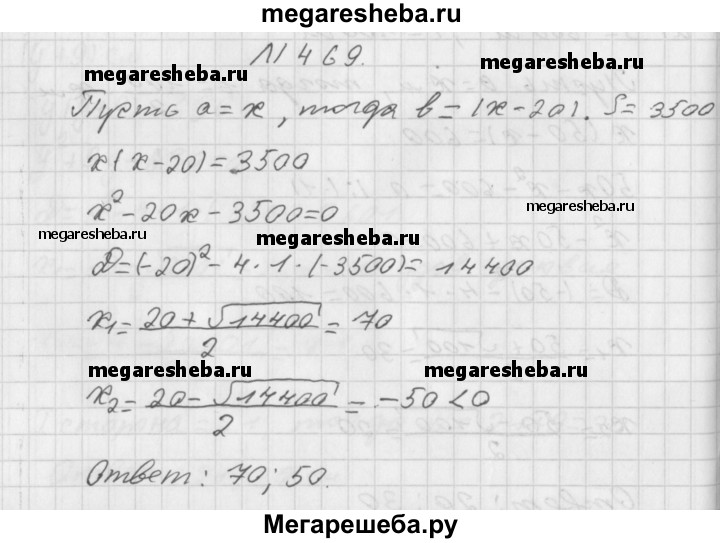 megaresheba.ru
N 469.
megaresheba.ru megaresheba.ru
Пусть a = x, тогда b = (x-20). S = 3500
x(x-20) = 3500
x² - 20x - 3500 = 0
megaresheba.ru megaresheba.ru megaresheba.ru
D = (-20)² - 4·1·(-3500) = 14400
x₁ = (20 + √14400)/2 = 70
megaresheba.ru megaresheba.ru
x₂ = (20 - √14400)/2 = -50 < 0
Ответ: 70; 50.
Мегарешеба.ру